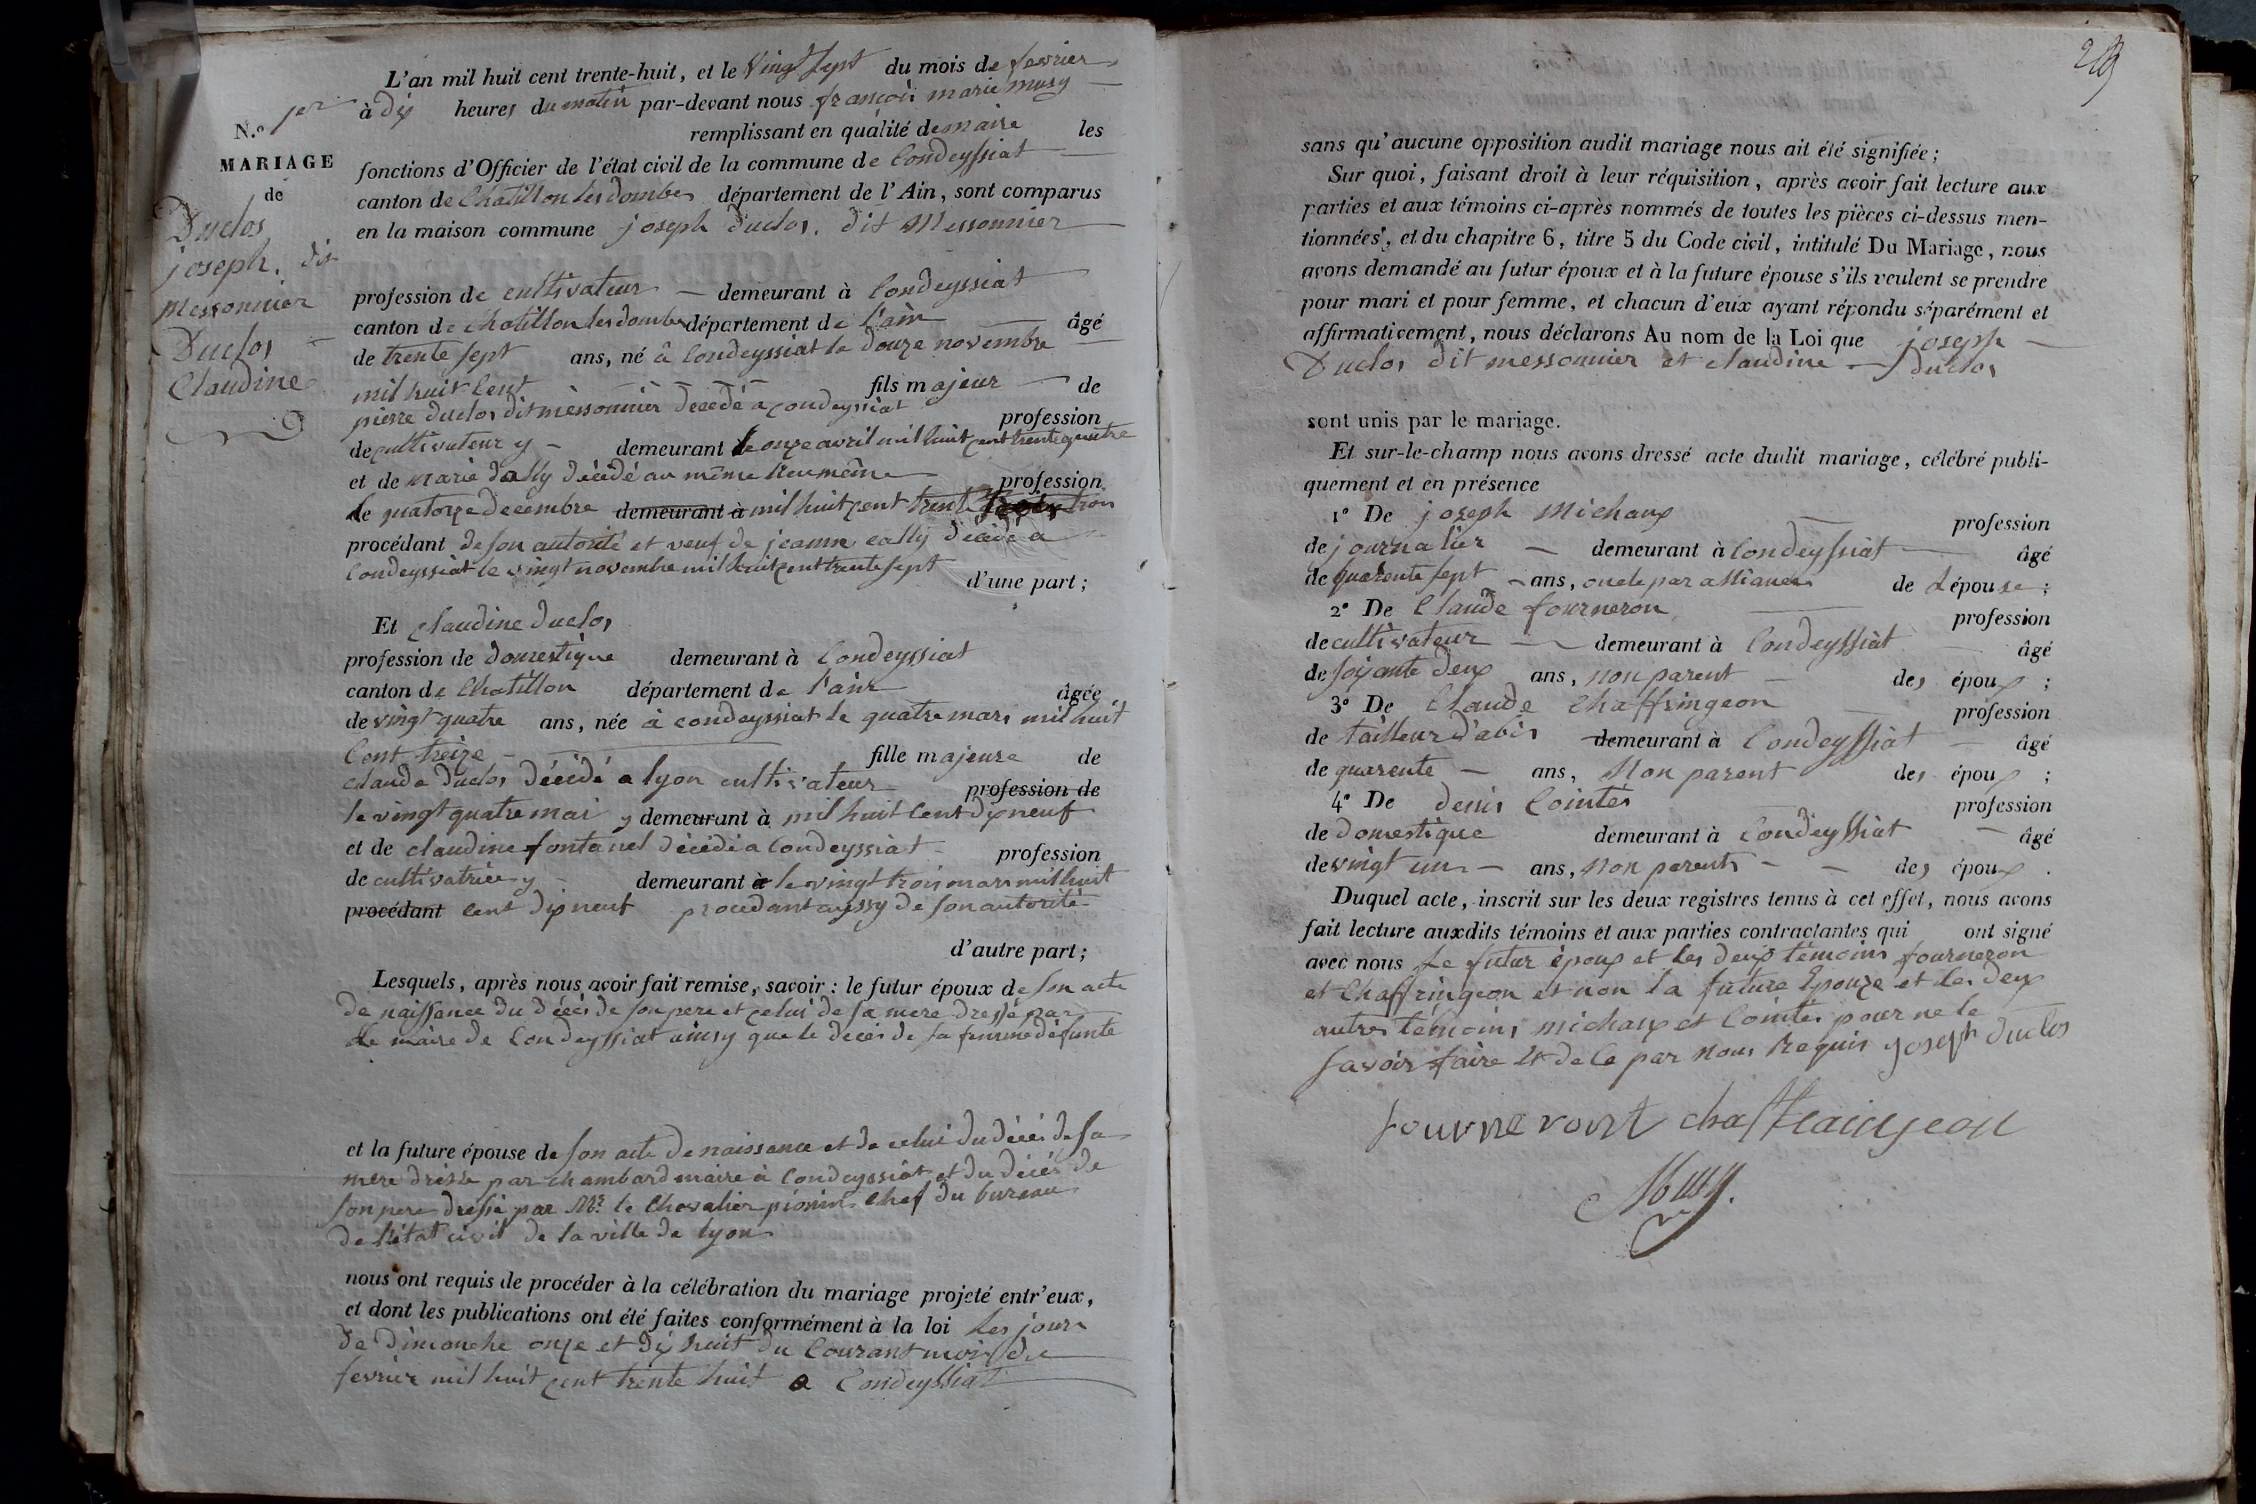 N.º 1er
MARIAGE
de
Duclos
joseph. dit
messonnier
Duclos
Claudine
L'an mil huit cent trente-huit, et le Vingt sept du mois de fevrier
à dix heures du matin par-devant nous françois marie musy
remplissant en qualité de maire les
fonctions d'Officier de l'état civil de la commune de Condeyssiat
canton de Chatillon les dombes département de l'Ain, sont comparus
en la maison commune joseph duclos. dit Messonnier
profession de cultivateur demeurant à Condeyssiat
canton de chatillon les dombes département de l'ain âgé
de trente sept ans, né à Condeyssiat le douze novembre
mil huit Cent fils majeur de
pierre duclos dit messonnier décédé a condeyssiat
profession
de cultivateur y demeurant le onze avril mil huit cent trente quatre
et de marie dally décédé au même lieu
profession
le quatorze decembre demeurant à mil huit cent trente trois
procédant de son autorité et veuf de jeanne cally décédé a
Condeyssiat le vingt novembre mil huit cent trente sept
d'une part;
Et claudine duclos
profession de domestique demeurant à Condeyssiat
canton de Chatillon département de l'ain âgée
de vingt quatre ans, née à condeyssiat le quatre mars mil huit
Cent treize fille majeure de
claude duclos décédé a lyon cultivateur profession de
le vingt quatre mai y demeurant à mil huit Cent dix neuf
et de claudine fontanel décédé a Condeyssiat profession
de cultivatrice y demeurant à le vingt trois mars mil huit
procédant cent dix neuf procedant aussy de son autorité
d'autre part;
Lesquels, après nous avoir fait remise, savoir: le futur époux de son acte
de naissance du décés de son pere et celui de sa mere dressé par
le maire de Condeyssiat ainsy que le decés de sa femme défunte
et la future épouse de son acte de naissance et de celui du décés de sa
mere dréssé par chambard maire à Condeyssiat et du décés de
son pere dressé par Mr. le Chevalier chef du bureau
de l'état civil de la ville de lyon
nous ont requis de procéder à la célébration du mariage projeté entr'eux,
et dont les publications ont été faites conformément à la loi les jours
de dimanche onze et dix huit du Courant mois de
fevrier mil huit cent trente huit a Condeyssiat
sans qu'aucune opposition audit mariage nous ait été signifiée;
Sur quoi, faisant droit à leur réquisition, après avoir fait lecture aux
parties et aux témoins ci-après nommés de toutes les pièces ci-dessus men-
tionnées, et du chapitre 6, titre 5 du Code civil, intitulé Du Mariage, nous
avons demandé au futur époux et à la future épouse s'ils veulent se prendre
pour mari et pour femme, et chacun d'eux ayant répondu séparément et
affirmativement, nous déclarons Au nom de la Loi que joseph
Duclos dit messonnier et claudine duclos
sont unis par le mariage.
Et sur-le-champ nous avons dressé acte dudit mariage, célébré publi-
quement et en présence
1º De joseph Michaux profession
de journalier demeurant à Condeyssiat âgé
de quarente sept ans, oncle par alliance de Lépouse;
2º De Claude fourneron profession
de cultivateur demeurant à Condeyssiat âgé
de soixante deux ans, non parent des époux;
3º De Claude Chaffringeon profession
de tailleur d'abis demeurant à Condeyssiat âgé
de quarente ans, Non parent des époux;
4º De denis Cointes profession
de domestique demeurant à Condeyssiat âgé
de vingt un ans, non parents des époux.
Duquel acte, inscrit sur les deux registres tenus à cet effet, nous avons
fait lecture auxdits témoins et aux parties contractantes qui ont signé
avec nous le futur époux et les deux témoins fourneron
et Chaffringeon et non la future Epouze et les deux
autres témoins michaux et Cointes pour ne le
savoir faire Et de Ce par Nous Requis joseph duclos
Musy.